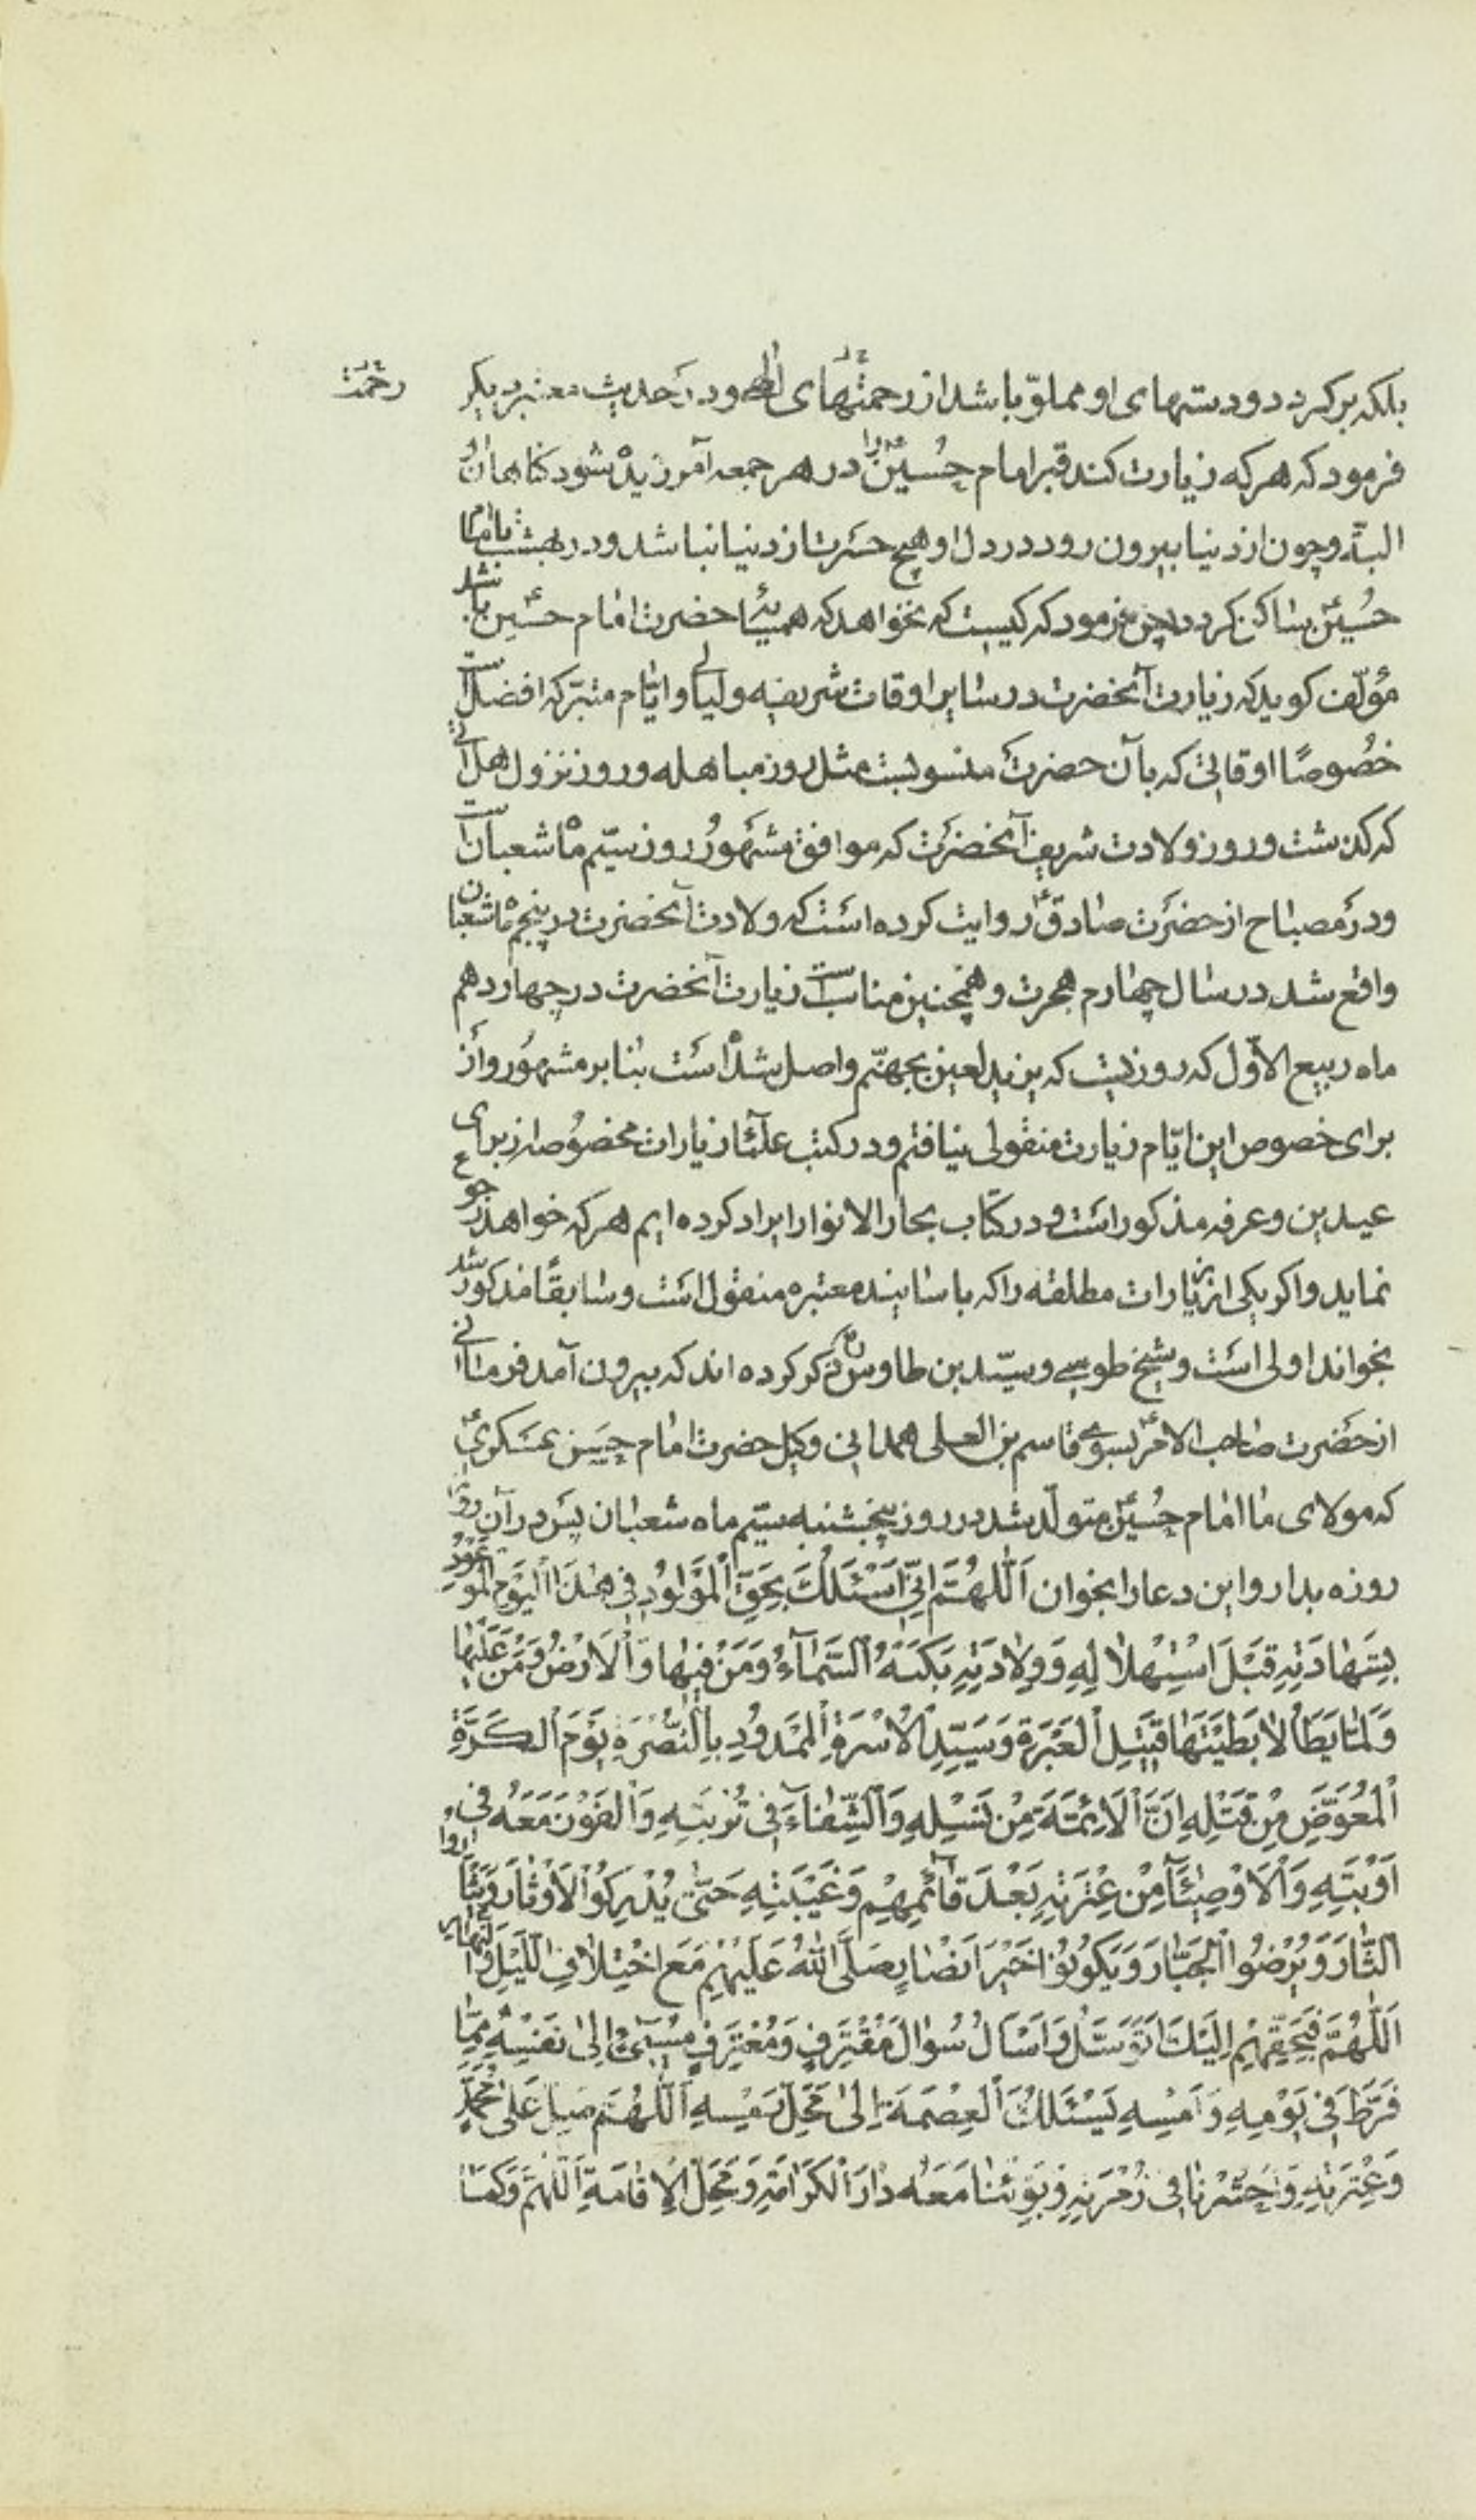 بلکه برکردد و دستهای او مملوّ باشد از رحمتهای الهی و در حدیث معتبر دیکر
رحمت
فرمود که هر که زیارت کند قبر امام حُسینؑ را در هر جمعه آمرزیده شود کناهان او
البتّه و چون از دنیا بیرون رود در دل او هیچ حسرت از دنیا نباشد و در بهشت با امام
حُسینؑ ساکن کردد پس فرمود که کیست که نخواهد که همسایۀ حضرت امام حسینؑ باشد
مؤلّف کوید که زیارت آنحضرت در سایر اوقات شریفه و لیالی و ایّام متبرّکه افضل است
خصُوصًا اوقاتی که بآن حضرت منسوبست مثل روز مباهله و روز نزول هل اتی
که کذشت و روز ولادت شریف آنحضرت که موافق مشهُور روز سیّم ماه شعبان است
و در مصباح از حضرت صادقؑ روایت کرده است که ولادت آنحضرت در پنجم ماه شعبان
واقع شد در سال چهارم هجرت و همچنین مناسب است زیارت آنحضرت در چهاردهم
ماه ربیع الاوّل که روزیست که یزید لعین بجهنّم واصل شده است بنا بر مشهُور و از
برای خصوص این ایّام زیارت منقولی نیافتم و در کتب علمآء زیارات مخصُوصه از برای
عیدین و عرفه مذکور است و در کتاب بحار الانوار ایراد کرده ایم هر که خواهد رجوع
نماید و اکر یکی از زیارات مطلقه را که باسانید معتبره منقول است و سابقًا مذکور شد
بخواند اولی است و شیخ طوسی و سیّد بن طاوس ره ذکر کرده اند که بیرون آمد فرمانی
از حضرت صاحب الامرؑ بسوی قاسم بن العلی همدانی وکیل حضرت امام حسن عسکریؑ
که مولای ما امام حُسینؑ متولّد شد در روز پنجشنبه سیّم ماه شعبان پس در آن روز
روزه بدار و این دعا را بخوان اَللّٰهُمَّ اِنّی اَسْئَلُكَ بِحَقِّ الْمَوْلُودِ فی هٰذَا الْیَوْمِ الْمَوْعُودِ
بِشَهادَتِهِ قَبْلَ اسْتِهْلالِهِ وَ وِلادَتِهِ بَكَتْهُ السَّمآءُ وَ مَنْ فیها وَ الْاَرْضُ وَ مَنْ عَلَیْها
وَ لَمّا یَطَأْ لابَطَیْتَهَا قَتیلِ الْعَبْرَةِ وَ سَیِّدِ الْاُسْرَةِ الْمَمْدُودِ بِالنُّصْرَةِ یَوْمَ الْكَرَّةِ
الْمُعَوَّضِ مِنْ قَتْلِهِ اِنَّ الْاَئِمَّةَ مِنْ نَسْلِهِ وَ الشِّفآءَ فی تُرْبَتِهِ وَ الْفَوْزَ مَعَهُ فی
اَوْبَتِهِ وَ الْاَوْصِیٰآءَ مِنْ عِتْرَتِهِ بَعْدَ قآئِمِهِمْ وَ غَیْبَتِهِ حَتّٰی یُدْرِكُوا الْاَوْتارَ وَ یَثْاَرُوا
الثّارَ وَ یُرْضُوا الْجَبّارَ وَ یَكُونُوا خَیْرَ اَنْصارٍ صَلَّی اللّٰهُ عَلَیْهِمْ مَعَ اخْتِلافِ اللَّیْلِ وَ النَّهارِ
اَللّٰهُمَّ فَبِحَقِّهِمْ اِلَیْكَ اَتَوَسَّلُ وَ اَسْاَلُ سُوالَ مُقْتَرِفٍ وَ مُعْتَرِفٍ مُسیٓءٍ اِلیٰ نَفْسِهِ مِمّا
فَرَّطَ فی یَوْمِهِ وَ اَمْسِهِ یَسْئَلُكَ الْعِصْمَةَ اِلیٰ مَحَلِّ رَمْسِهِ اَللّٰهُمَّ صَلِّ عَلیٰ مُحَمَّدٍ
وَ عِتْرَتِهِ وَ احْشُرْنا فی زُمْرَتِهِ وَ بَوِّئْنا مَعَهُ دارَ الْكَرامَةِ وَ مَحَلَّ الْاِقامَةِ اَللّٰهُمَّ وَ كَما